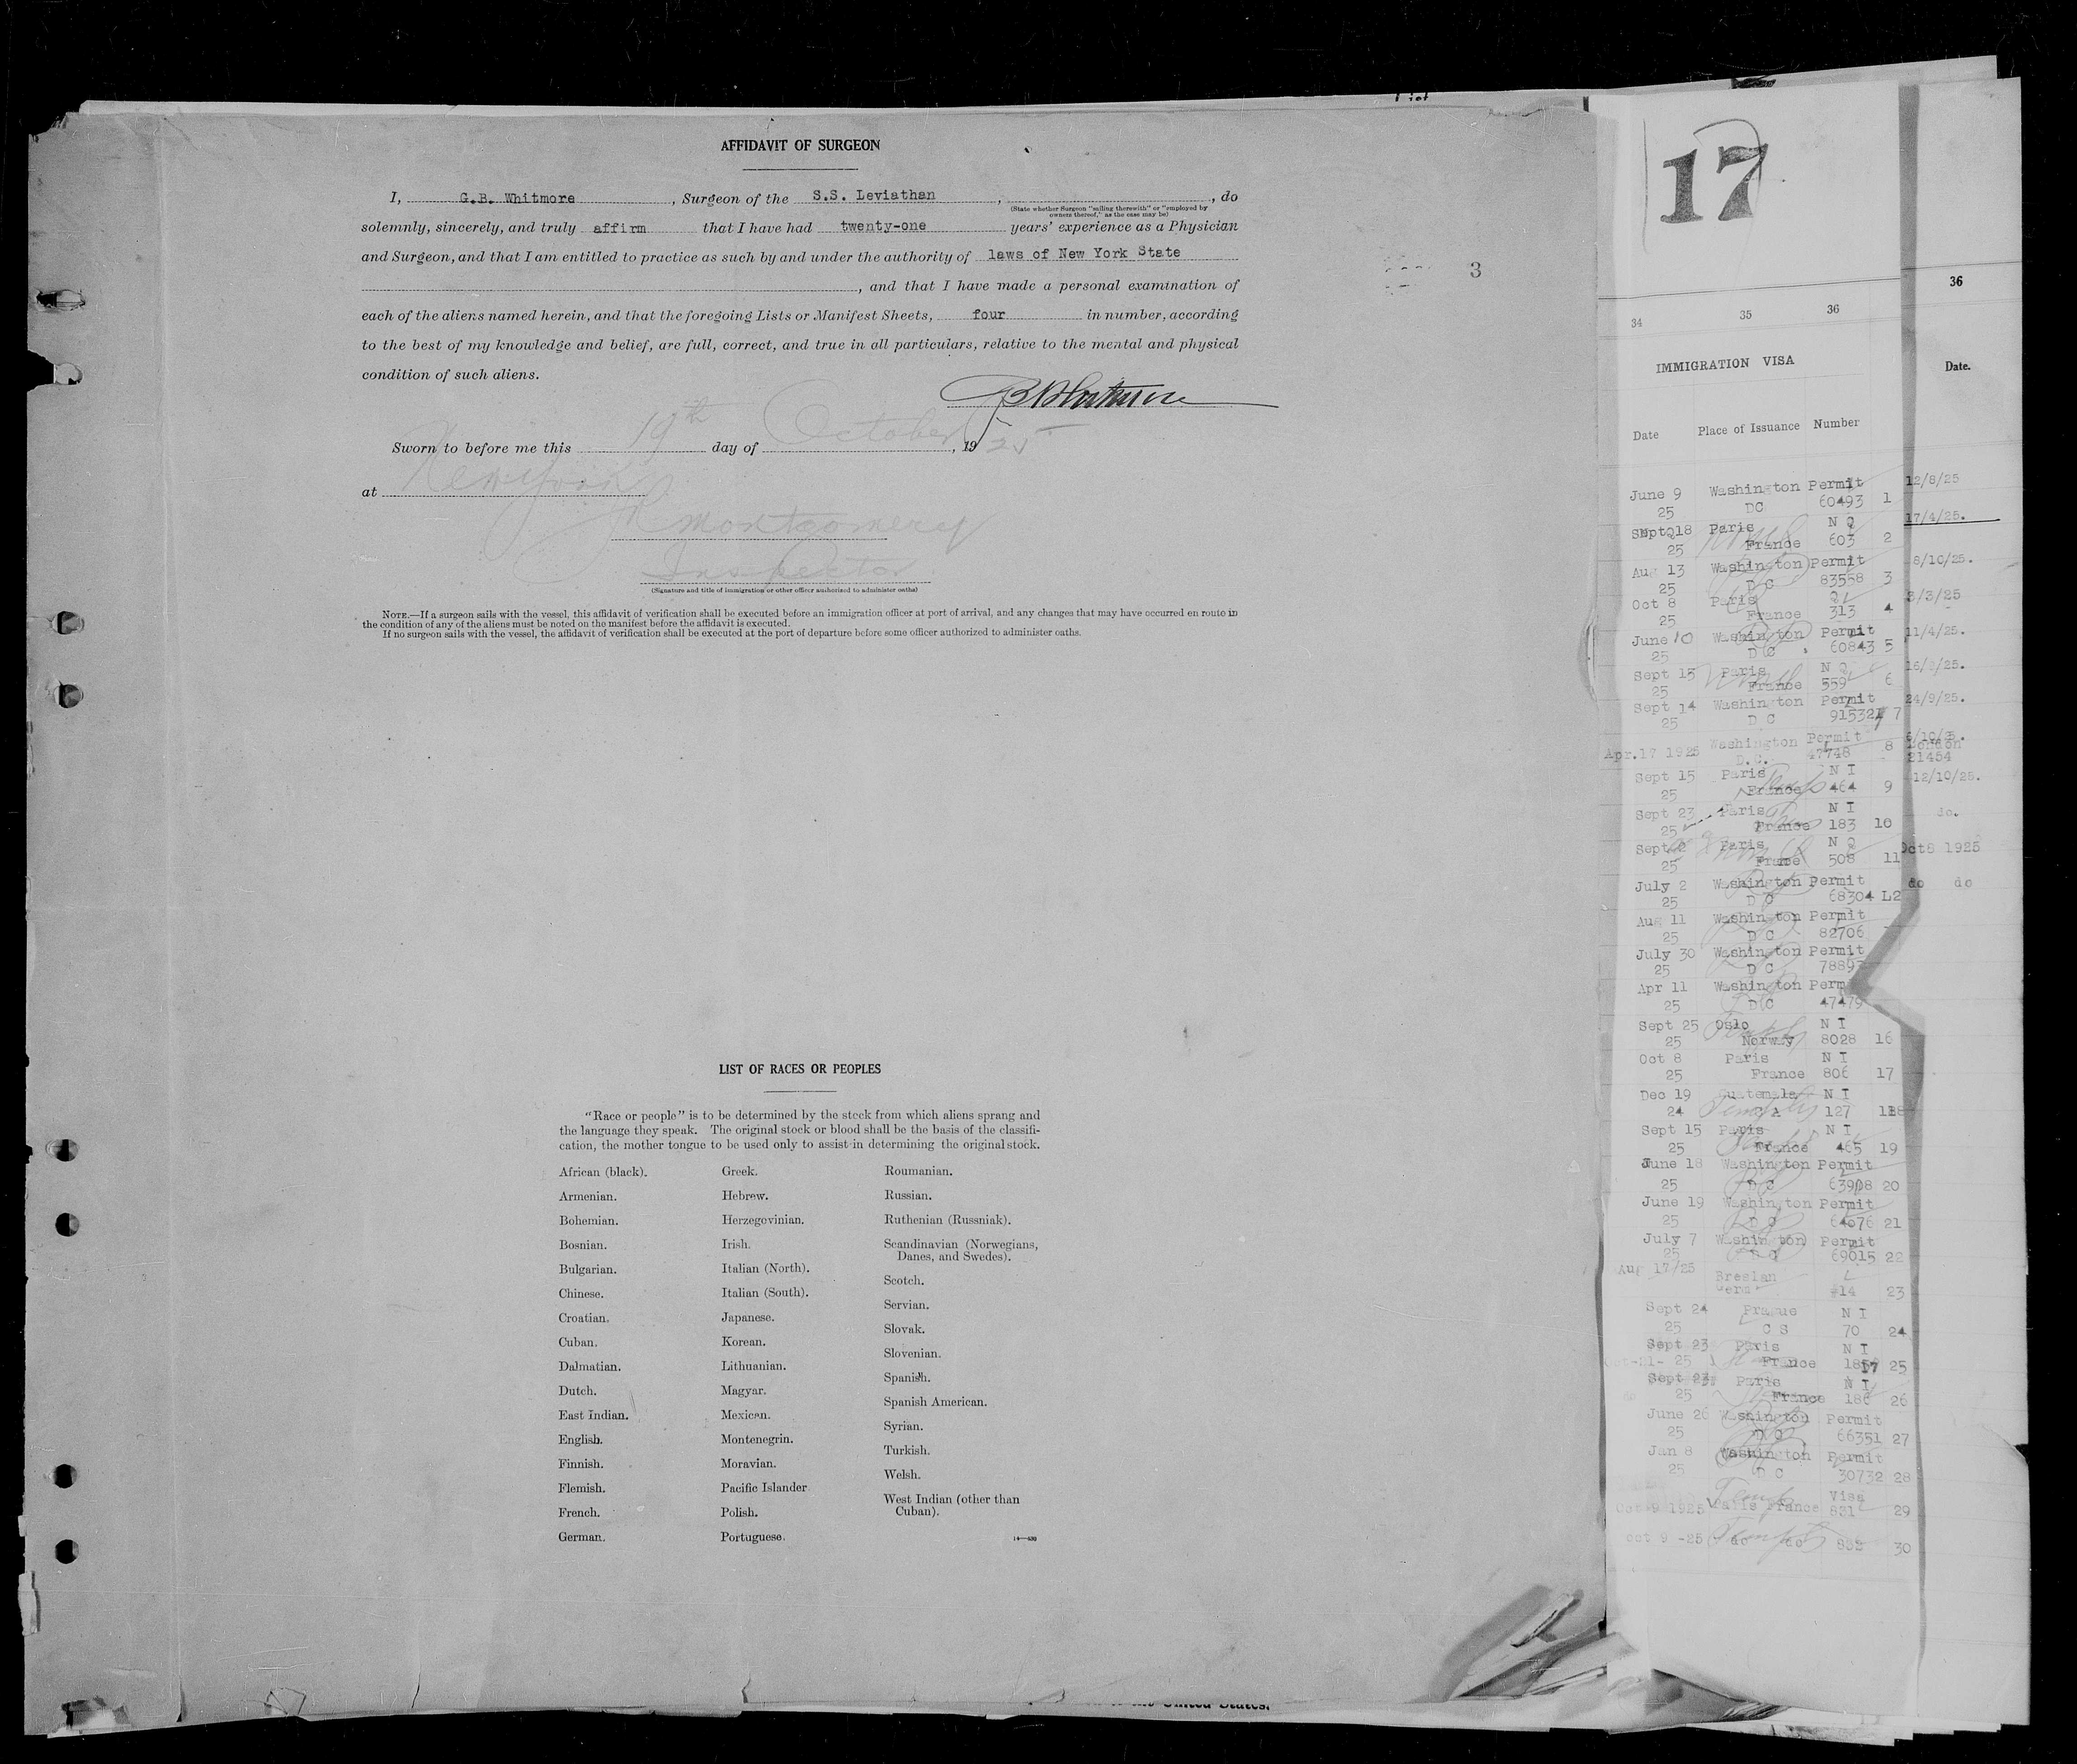 AFFIDAVIT OF SURGEON
I, G.B. Whitmore, Surgeon of the S.S. Leviathan, , do
(State whether Surgeon "sailing therewith" or "employed by
owners thereof," as the case may be)
solemnly, sincerely, and truly affirm that I have had twenty-one years' experience as a Physician
and Surgeon, and that I am entitled to practice as such by and under the authority of laws of New York State
, and that I have made a personal examination of
each of the aliens named herein, and that the foregoing Lists or Manifest Sheets, four in number, according
to the best of my knowledge and belief, are full, correct, and true in all particulars, relative to the mental and physical
condition of such aliens.
GB Whitmore
Sworn to before me this 19th day of October, 1925
at New York
Montgomery
Inspector
(Signature and title of immigration or other officer authorized to administer oaths)
NOTE.—If a surgeon sails with the vessel, this affidavit of verification shall be executed before an immigration officer at port of arrival, and any changes that may have occurred en route in
the condition of any of the aliens must be noted on the manifest before the affidavit is executed.
If no surgeon sails with the vessel, the affidavit of verification shall be executed at the port of departure before some officer authorized to administer oaths.
3
LIST OF RACES OR PEOPLES
"Race or people" is to be determined by the stock from which aliens sprang and
the language they speak. The original stock or blood shall be the basis of the classifi-
cation, the mother tongue to be used only to assist in determining the original stock.
African (black).
Armenian.
Bohemian.
Bosnian.
Bulgarian.
Chinese.
Croatian.
Cuban.
Dalmatian.
Dutch.
East Indian.
English.
Finnish.
Flemish.
French.
German.
Greek.
Hebrew.
Herzegovinian.
Irish.
Italian (North).
Italian (South).
Japanese.
Korean.
Lithuanian.
Magyar.
Mexican.
Montenegrin.
Moravian.
Pacific Islander
Polish.
Portuguese.
Roumanian.
Russian.
Ruthenian (Russniak).
Scandinavian (Norwegians,
Danes, and Swedes).
Scotch.
Servian.
Slovak.
Slovenian.
Spanish.
Spanish American.
Syrian.
Turkish.
Welsh.
West Indian (other than
Cuban).
17
34 35 36
IMMIGRATION VISA
Date Place of Issuance Number
June 9 Washington Permit
25 DC 60493 1
Sept 18 Paris N Q
25 France 603 2
Aug 13 Washington Permit
25 D C 83558 3
Oct 8 Paris
25 France 313 4
June 10 Washington Permit
25 D C 60843 5
Sept 15 Paris N Q
25 France 559 6
Sept 14 Washington Permit
25 D C 91532 7
Apr.17 1925 Washington Permit
D.C. 47748 8
Sept 15 Paris N I
25 France 464 9
Sept 23 Paris N I
25 France 183 10
Sept Paris N Q
25 France 508 11
July 2 Washington Permit
25 D C 68304 12
Aug 11 Washington Permit
25 D C 82706
July 30 Washington Permit
25 D C 7889
Apr 11 Washington Perm
25 D C 47479
Sept 25 Oslo N I
25 Norway 8028 16
Oct 8 Paris N I
25 France 806 17
Dec 19 Guatemala N I
24 C A 127 18
Sept 15 Paris N I
25 France 465 19
June 18 Washington Permit
25 D C 63908 20
June 19 Washington Permit
25 D C 64076 21
July 7 Washington Permit
25 D C 69015 22
Aug 17/25 Breslau
Germ #14 23
Sept 24 Prague N I
25 C S 70 24
Sept 23 Paris N I
25 France 25
Sept 23 Paris N I
25 France 186 26
June 26 Washington Permit
25 D C 66351 27
Jan 8 Washington Permit
25 D C 30732 28
Visa
Oct 9 1925 Paris France 831 29
oct 9 -25 do do 832 30
36
Date.
12/8/25
17/4/25.
8/10/25.
3/3/25
11/4/25.
16/ /25.
24/9/25.
6/10/25.
London
21454
12/10/25.
do.
Oct8 1925
do do
United States.